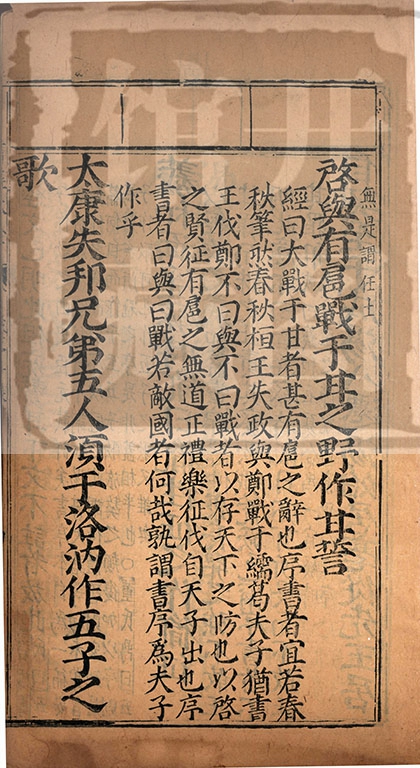 無是謂任土
啓與有扈戰于甘之野作甘誓
經曰大戰于甘者甚有扈之辭也序書者宜若春
秋筆然春秋桓王失政與鄭戰于繻葛夫子猶書
王伐鄭不曰與不曰戰者以存天下之防也以啓
之賢征有扈之無道正禮樂征伐自天子出也序
書者曰與曰戰若敵國者何哉孰謂書序爲夫子
作乎
大康失邦兄弟五人須于洛汭作五子之
歌